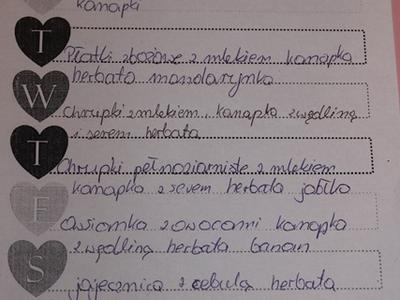 kanapki
T
Płatki zbożowe z mlekiem kanapka
herbata mandarynka
W
Chrupki z mlekiem, kanapka z wędliną
i serem herbata
T
Chrupki pełnoziarniste z mlekiem
kanapka z serem herbata jabłko
F
Owsianka z owocami kanapka
z wędliną herbata banan
S
jajecznica z cebulą herbata